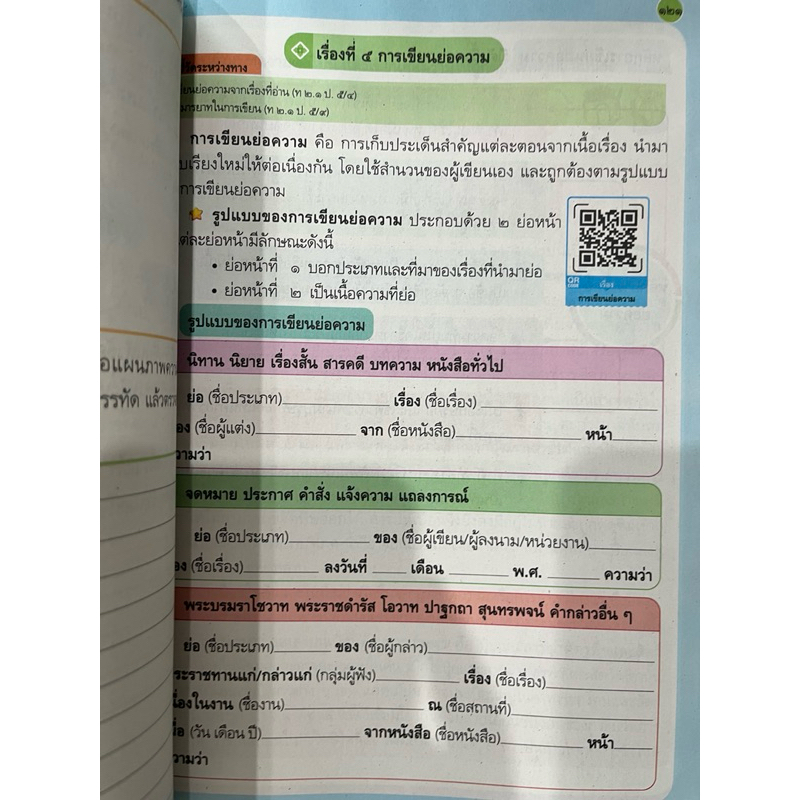 ๑๒๑
เรื่องที่ ๕ การเขียนย่อความ
ระหว่างทาง
ย่อความจากเรื่องที่อ่าน (ท ๒.๑ ป. ๕/๔)
มารยาทในการเขียน (ท ๒.๑ ป. ๕/๙)
การเขียนย่อความ คือ การเก็บประเด็นสำคัญแต่ละตอนจากเนื้อเรื่อง นำมา
เรียงใหม่ให้ต่อเนื่องกัน โดยใช้สำนวนของผู้เขียนเอง และถูกต้องตามรูปแบบ
การเขียนย่อความ
รูปแบบของการเขียนย่อความ ประกอบด้วย ๒ ย่อหน้า
ต่ละย่อหน้ามีลักษณะดังนี้
• ย่อหน้าที่ ๑ บอกประเภทและที่มาของเรื่องที่นำมาย่อ
• ย่อหน้าที่ ๒ เป็นเนื้อความที่ย่อ
QR CODE เรื่อง
การเขียนย่อความ
รูปแบบของการเขียนย่อความ
นิทาน นิยาย เรื่องสั้น สารคดี บทความ หนังสือทั่วไป
ย่อ (ชื่อประเภท) เรื่อง (ชื่อเรื่อง)
อง (ชื่อผู้แต่ง) จาก (ชื่อหนังสือ) หน้า
วามว่า
จดหมาย ประกาศ คำสั่ง แจ้งความ แถลงการณ์
ย่อ (ชื่อประเภท) ของ (ชื่อผู้เขียน/ผู้ลงนาม/หน่วยงาน)
อง (ชื่อเรื่อง) ลงวันที่ เดือน พ.ศ. ความว่า
พระบรมราโชวาท พระราชดำรัส โอวาท ปาฐกถา สุนทรพจน์ คำกล่าวอื่น ๆ
ย่อ (ชื่อประเภท) ของ (ชื่อผู้กล่าว)
ระราชทานแก่/กล่าวแก่ (กลุ่มผู้ฟัง) เรื่อง (ชื่อเรื่อง)
นื่องในงาน (ชื่องาน) ณ (ชื่อสถานที่)
มื่อ (วัน เดือน ปี) จากหนังสือ (ชื่อหนังสือ) หน้า
วามว่า
อแผนภาพ
รรทัด แล้ว